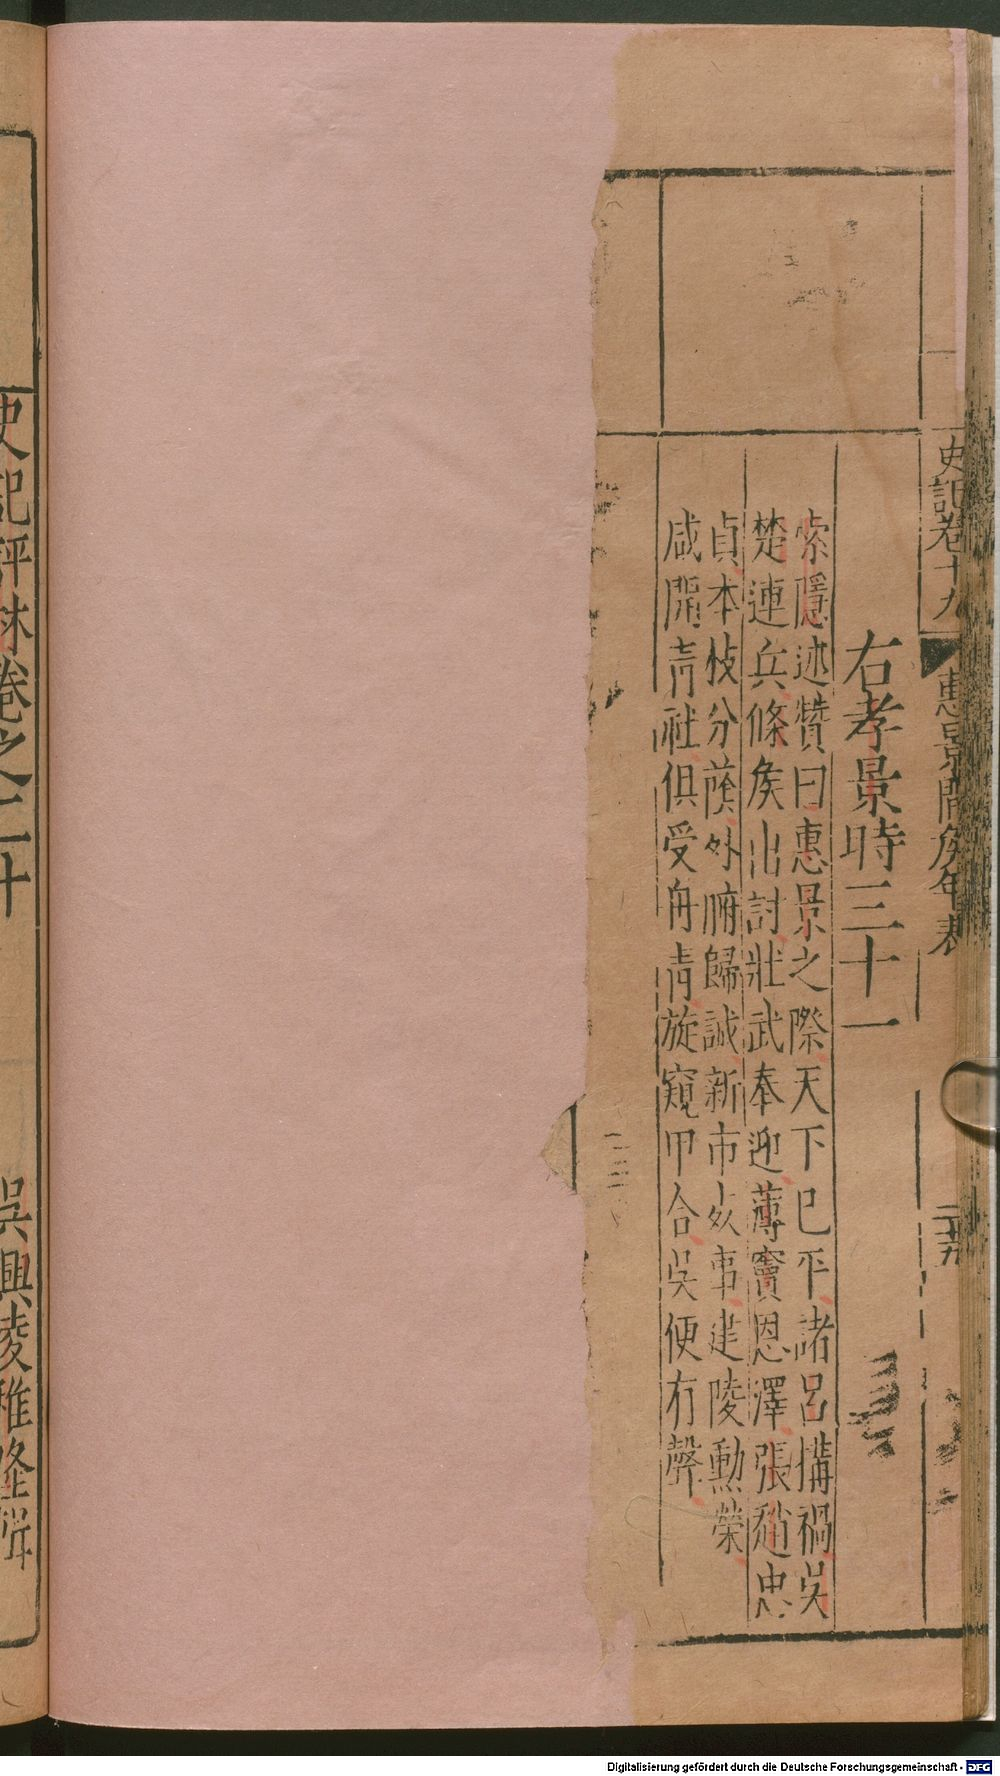 史記卷十九
惠景間矦年表
二十五
右孝景時三十一
索隱述贊曰惠景之際天下已平諸呂搆禍吳
楚連兵條矦出討壯武奉迎薄竇恩澤張趙忠
貞本枝分蔭外腑歸誠新市死事建陵勳榮
咸開青社俱受舟青旋窺甲令吳便有聲
史記評林卷之二十
吳興凌稚隆輯
Digitalisierung gefördert durch die Deutsche Forschungsgemeinschaft - DFG